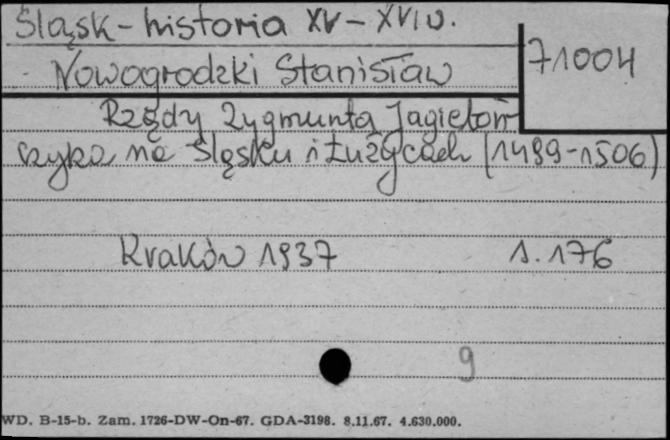 Śląsk - historia XV - XVI w.
71004
Nowogrodzki Stanisław
Rządy Zygmunta Jagielloń-
czyka na Śląsku i Łużycach (1499-1506)
Kraków 1937 s. 176
9
WD. B-15-b. Zam. 1726-DW-On-67. GDA-3198. 8.11.67. 4.630.000.